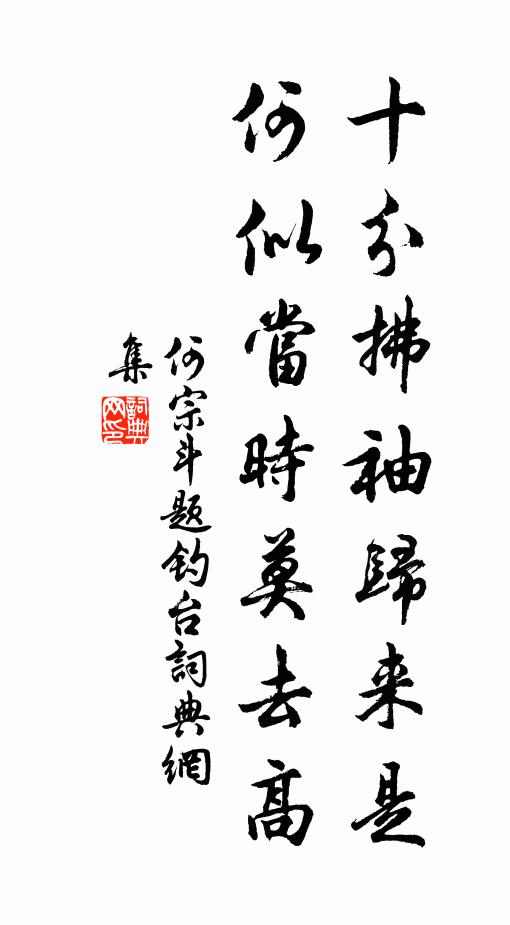 十分拂袖歸来是
何似當時莫去高
何宗斗题钓台詞典網
集
詞典
网印